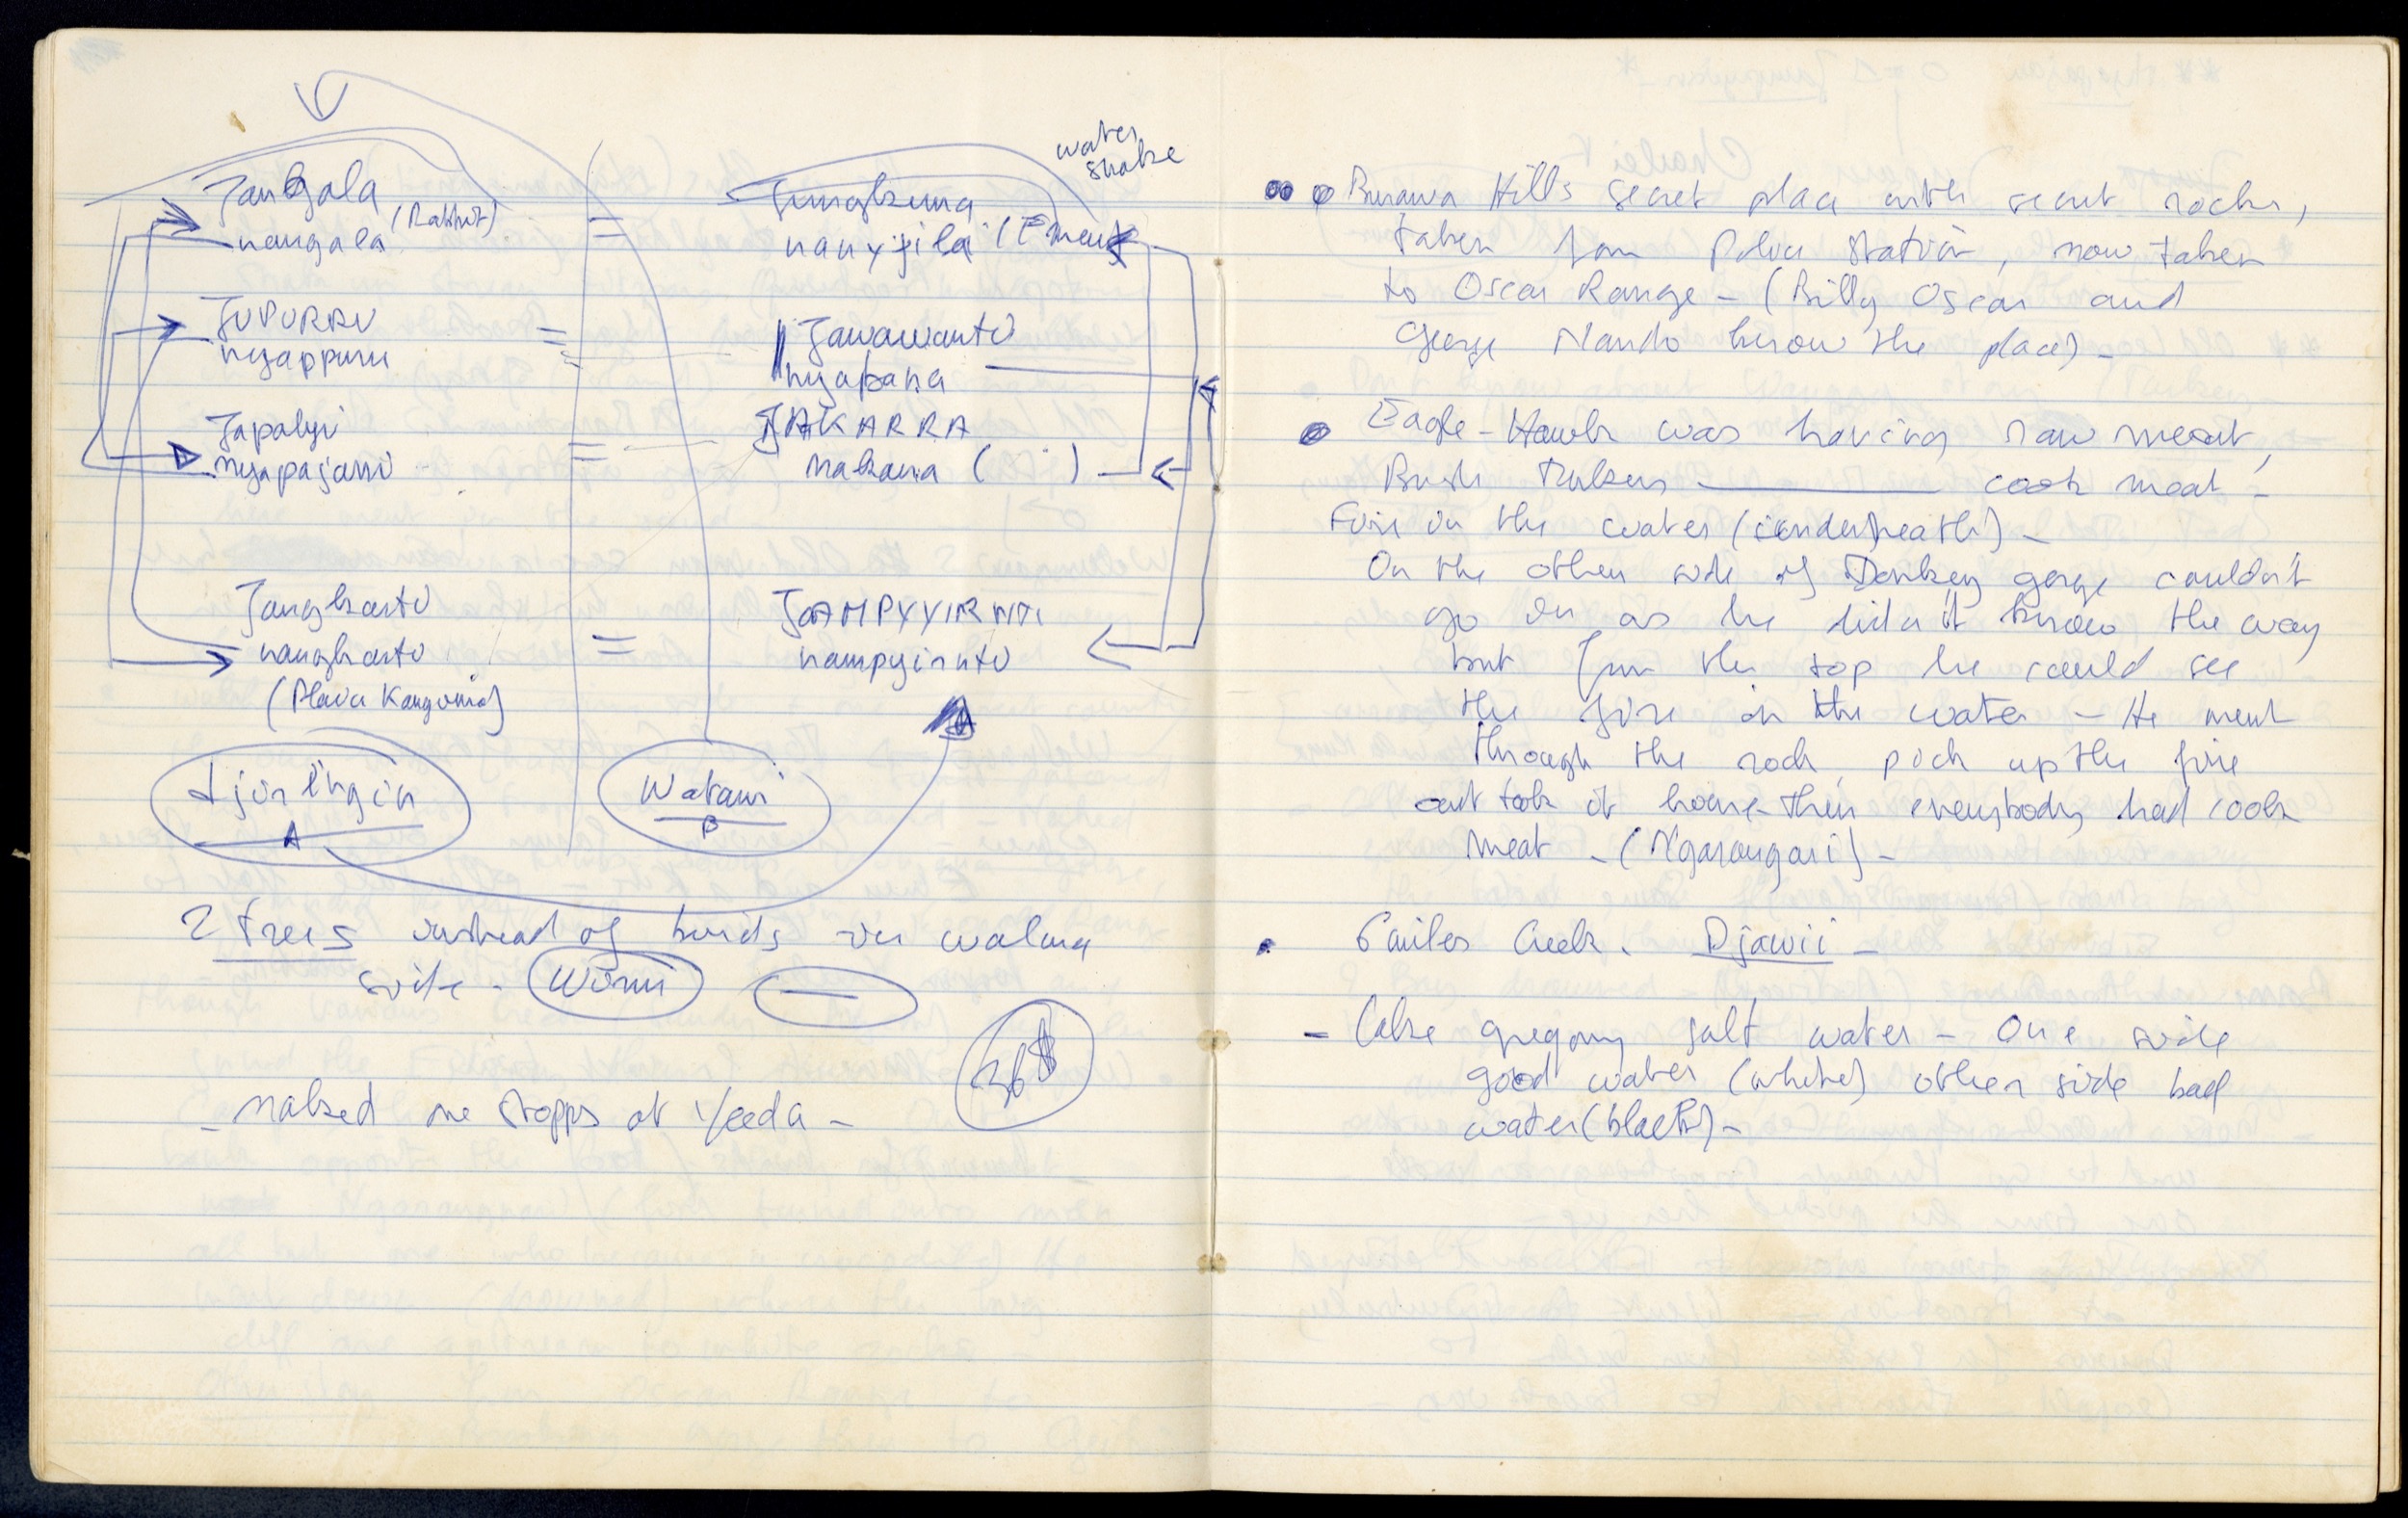 water
snake
Jangala
nangala (Rabbit)
=
Jungkurra
nanyjila (Emeu)
JUPURRU
nyappurru
=
Jawawanti
nyapana
Japalyi
nyapajarri
=
JAKARRA
nakarra ( )
Jangkarti
nangkarti
(Plain Kangourod)
=
JAMPIYIRNTI
nampyirnti
djirlingin
A
Watawi
B
2 trees instead of birds in walma
side -
- naked one stopps at Yeeda -
36$
Burawa Hills secret place with secret rocks,
taken from Police Station, now taken
to Oscar Range - (Billy Oscar and
George Nando know the place) -
Eagle-Hawk was having raw meat,
Bush Turkeys ——— cook meat -
Fire in the water (underneath) -
On the other side of Donkey gorge couldn't
go in as he didn't know the way
but from the top he could see
the fire in the water - He went
through the rock, pick up the fire
and took it home - then everybody had cook
meat - (Ngarangari) -
Creek. Djawii -
- Lake gregory salt water - One side
good water (white) other side bad
water (black) -